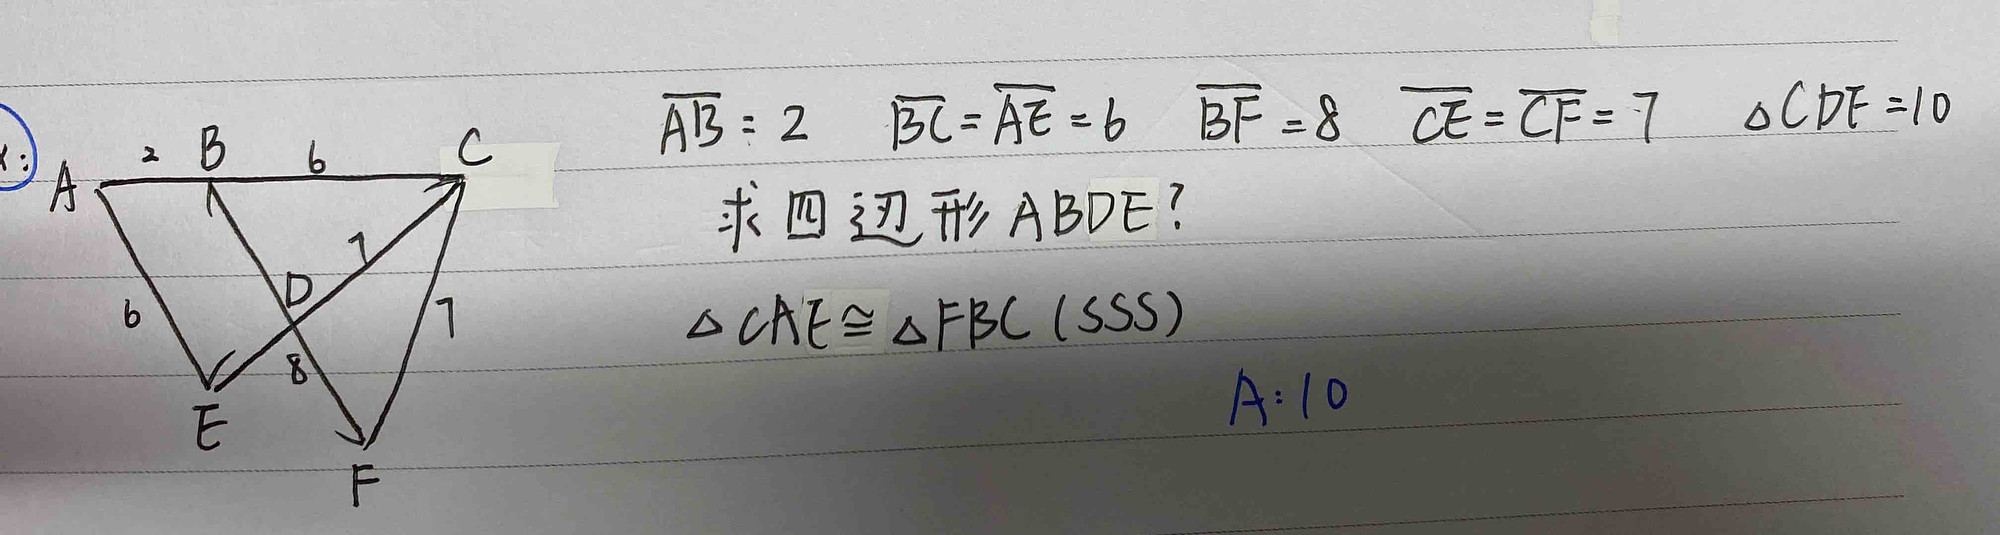 x:
A 2 B 6 C
7
D
6 7
8
E
F
AB = 2 BC = AE = 6 BF = 8 CE = CF = 7 △CDF = 10
求四边形ABDE?
△CAE ≅ △FBC (SSS)
A: 10